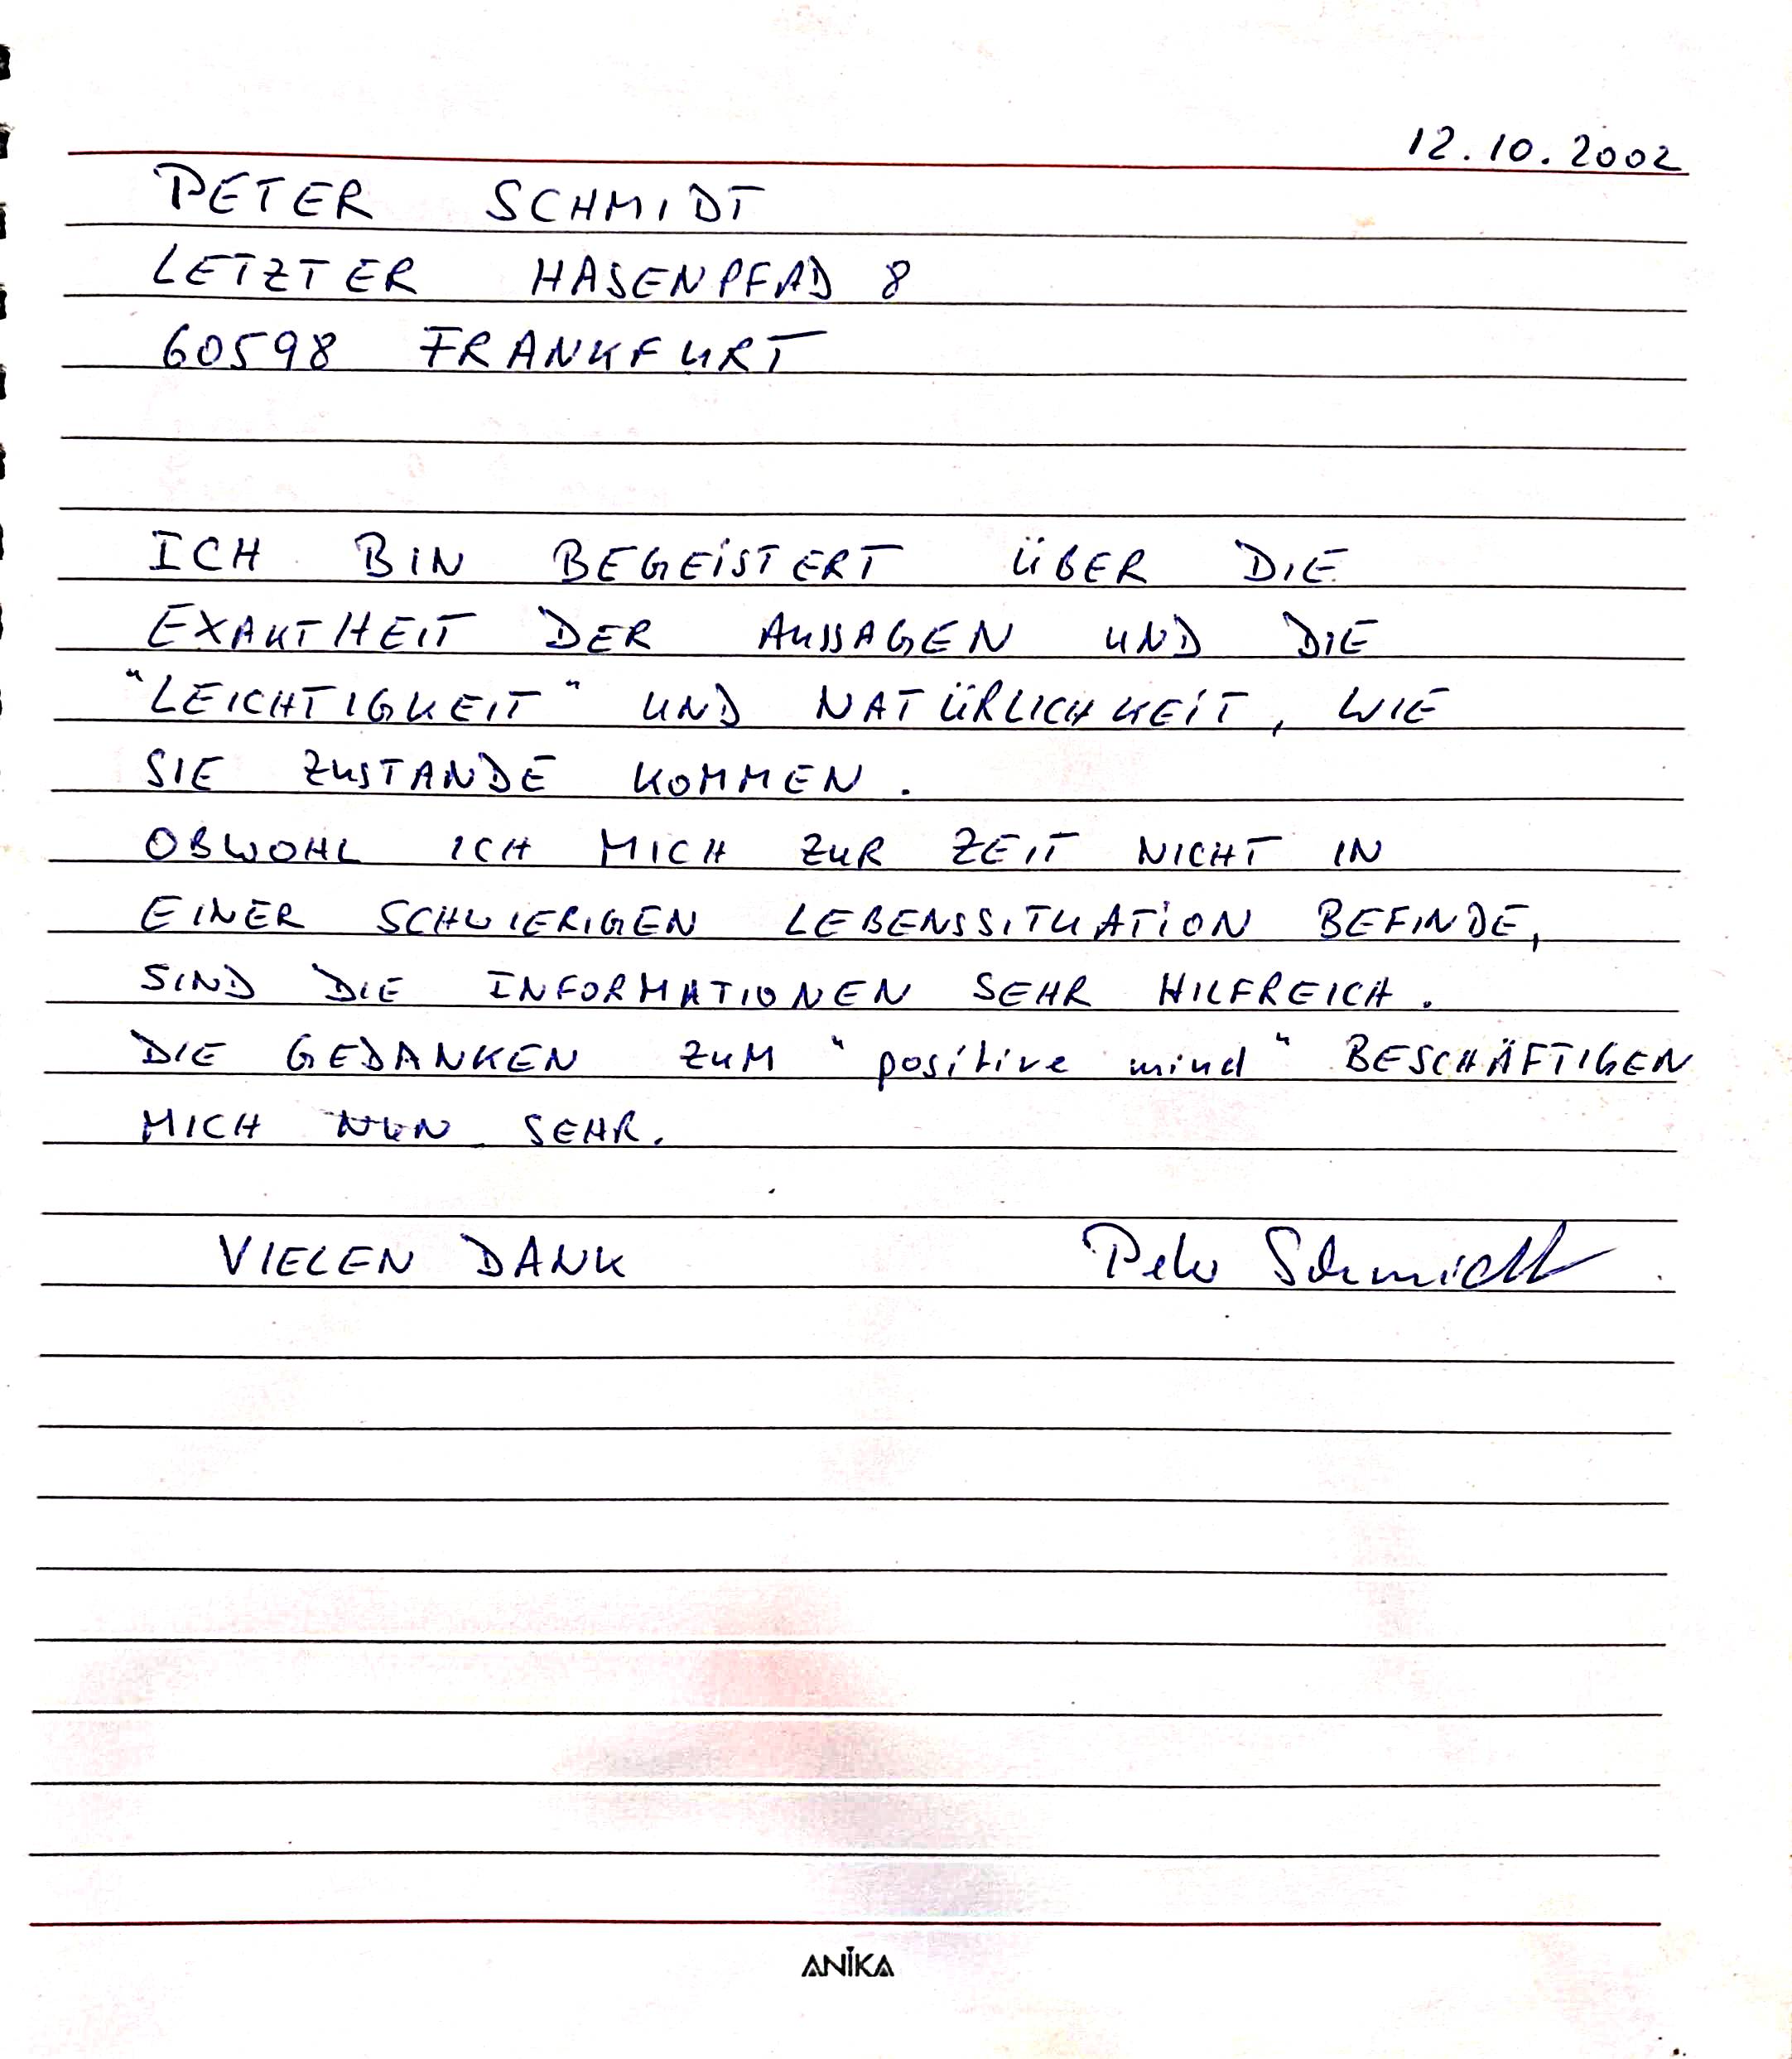 12.10.2002
PETER SCHMIDT
LETZTER HASENPFAD 8
60598 FRANKFURT
ICH BIN BEGEISTERT ÜBER DIE
EXAKTHEIT DER AUSSAGEN UND DIE
"LEICHTIGKEIT" UND NATÜRLICHKEIT, WIE
SIE ZUSTANDE KOMMEN.
OBWOHL ICH MICH ZUR ZEIT NICHT IN
EINER SCHWIERIGEN LEBENSSITUATION BEFINDE,
SIND DIE INFORMATIONEN SEHR HILFREICH.
DIE GEDANKEN ZUM "positive mind" BESCHÄFTIGEN
MICH NUN SEHR.
VIELEN DANK Peter Schmidt
ANIKA